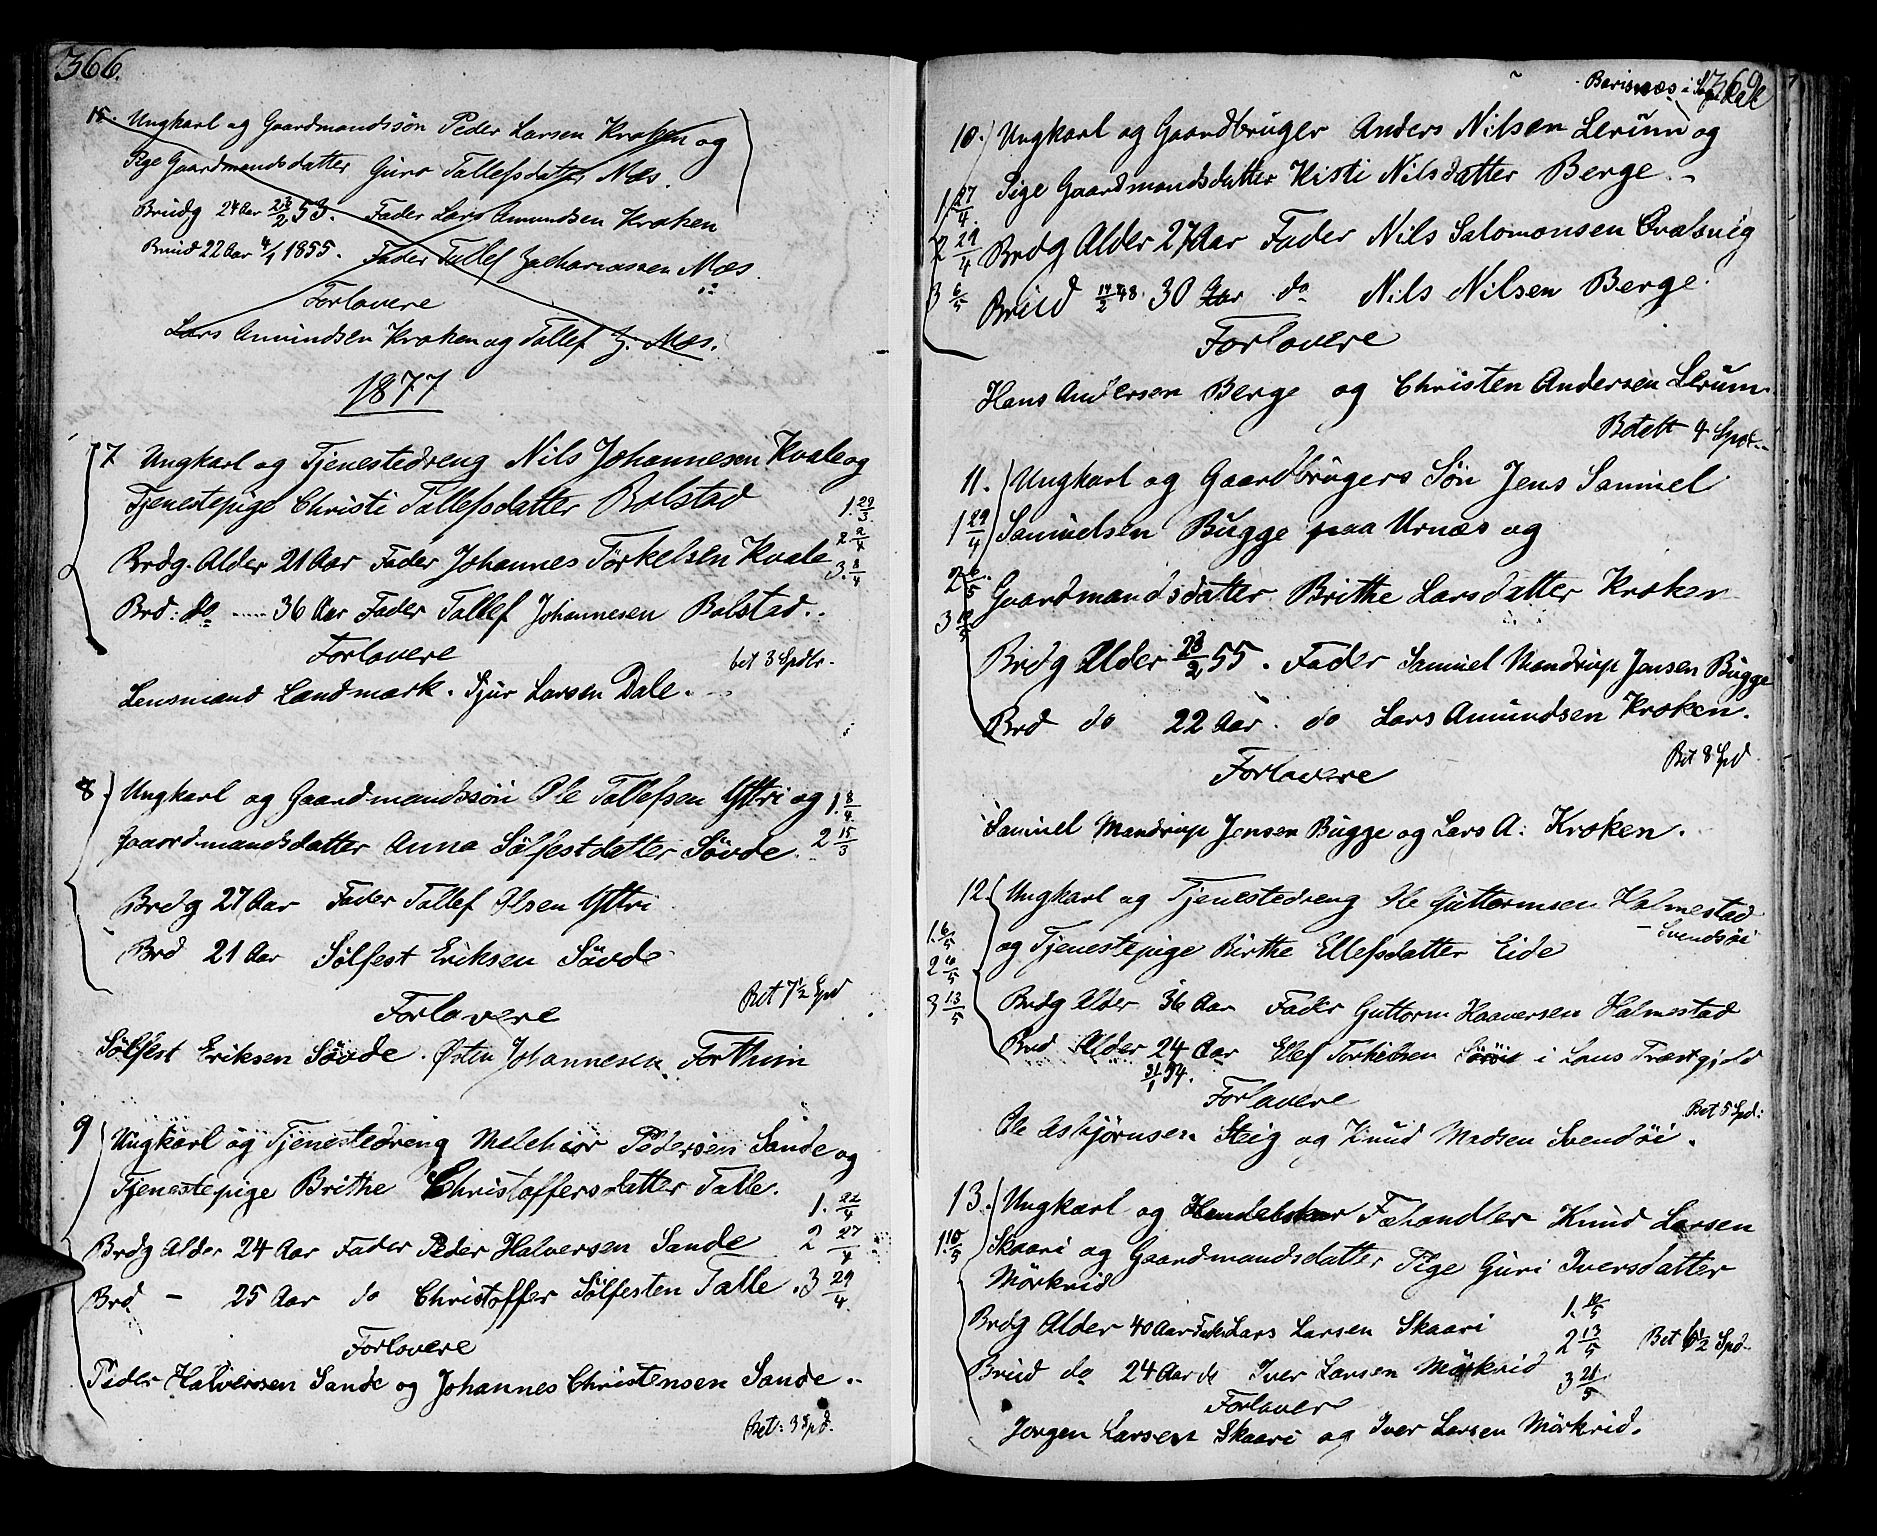 366.
15. Ungkarl og Gaardmandssøn Peder Larsen Kroken og
Pige Gaardmandsdatter Guro Tollefsdatter Næs.
Brudg 24 Aar 23/2 53. Fader Lars Amundsen Kroken
Brud 22 Aar 4/1 1855. Fader Tollef Zachariassen Næs.
Forlovere
Lars Amundsen Kroken og Tollef Z. Næs.
1877
7 Ungkarl og Tjenestedreng Nils Johannesen Kvale og
Tjenestepige Christi Tollefsdatter Bolstad 1. 29/3.
Brdg. Alder 21 Aar Fader Johannes Torkelsen Kvale 2. 2/4 3. 8/4
Brd: do ..... 36 Aar Fader Tollef Johannesen Bolstad.
Forlovere
bet 3 Spdlr.
Lensmand Landmark. Sjur Larsen Dale.
8) Ungkarl og Gaardmandssøn Ole Tollefsen Yttri og 1. 8/4.
Gaardmandsdatter Anna Sølfestdatter Søvde. 2 15/3
Brdg 27 Aar Fader Tollef Olsen Yttri
Brd 21 Aar Sølfest Eriksen Søvde
Bet 7½ Spd
Forlovere
Sølfest Eriksen Søvde. Østen Johannesen Forthun
9 Ungkarl og Tjenestedreng Melchior Pedersen Sande og
Tjenestepige Brithe Christoffersdatter Talle. 1. 22/4
Brdg Alder 24 Aar Fader Peder Halversen Sande 2 27/4
Brd - 25 Aar do Christoffer Sølfesten Talle. 3 29/4.
Forlovere
Peder Halverssen Sande og Johannes Christensen Sande.
Bet: 3 Spd.
Berisnæs i
10.) Ungkarl og Gaardbruger Anders Nilsen Lerum og
Pige Gaardmandsdatter Kisti Nilsdatter Berge
1. 27/4.
2 29/4 Brdg Alder 27 Aar Fader Nils Salomonsen Qvalsvig
3 6/5 Brud 14/2 48. 30 Aar do Nils Nilsen Berge
Forlovere
Hans Andersen Berge og Christen Andersen Lerum.
Betalt 4 Spd.
11.) Ungkarl og Gaardbrugers Søn Jens Samuel
1 29/4 Samuelsen Bugge paa Urnæs og
2 6/5. Gaardmandsdatter Brithe Larsdatter Kroken
3
Brdg Alder 23/2 55. Fader Samuel Mandrup Jensen Bugge
Brd do 22 Aar. do Lars Amundsen Kroken.
Bet 8 Spd
Forlovere
Samuel Mandrup Jensen Bugge og Lars A: Kroken.
12. Ungkarl og Tjenestedreng Ole Guttormsen Halmestad
- Svendsøi
1. 6/5 og Tjenestepige Birthe Ellefsdatter Eide
2
3 13/5 Brdg Alder 36 Aar Fader Guttorm Haaversen Halmestad
Brd Alder 24 Aar Ellef Torkelsen i
31/1 54.
Forlovere
Bet 5 Spd:
Ole Asbjørnsen Steig og Knud Madsen Svendøi.
13.) Ungkarl og Fæhandler Knud Larsen
1. 10/5 Skaari og Gaardmandsdatter Pige Guri Iversdatter
Mørkrid
Brdg Alder 40 Aar Fader Lars Larsen Skaari 1. 10/5
2 13/5 Bet 6½ Spd.
Brud do 24 Aar do Iver Larsen Mørkrid 3 21/5
Forlover
Jørgen Larsen Skaari og Iver Larsen Mørkrid.